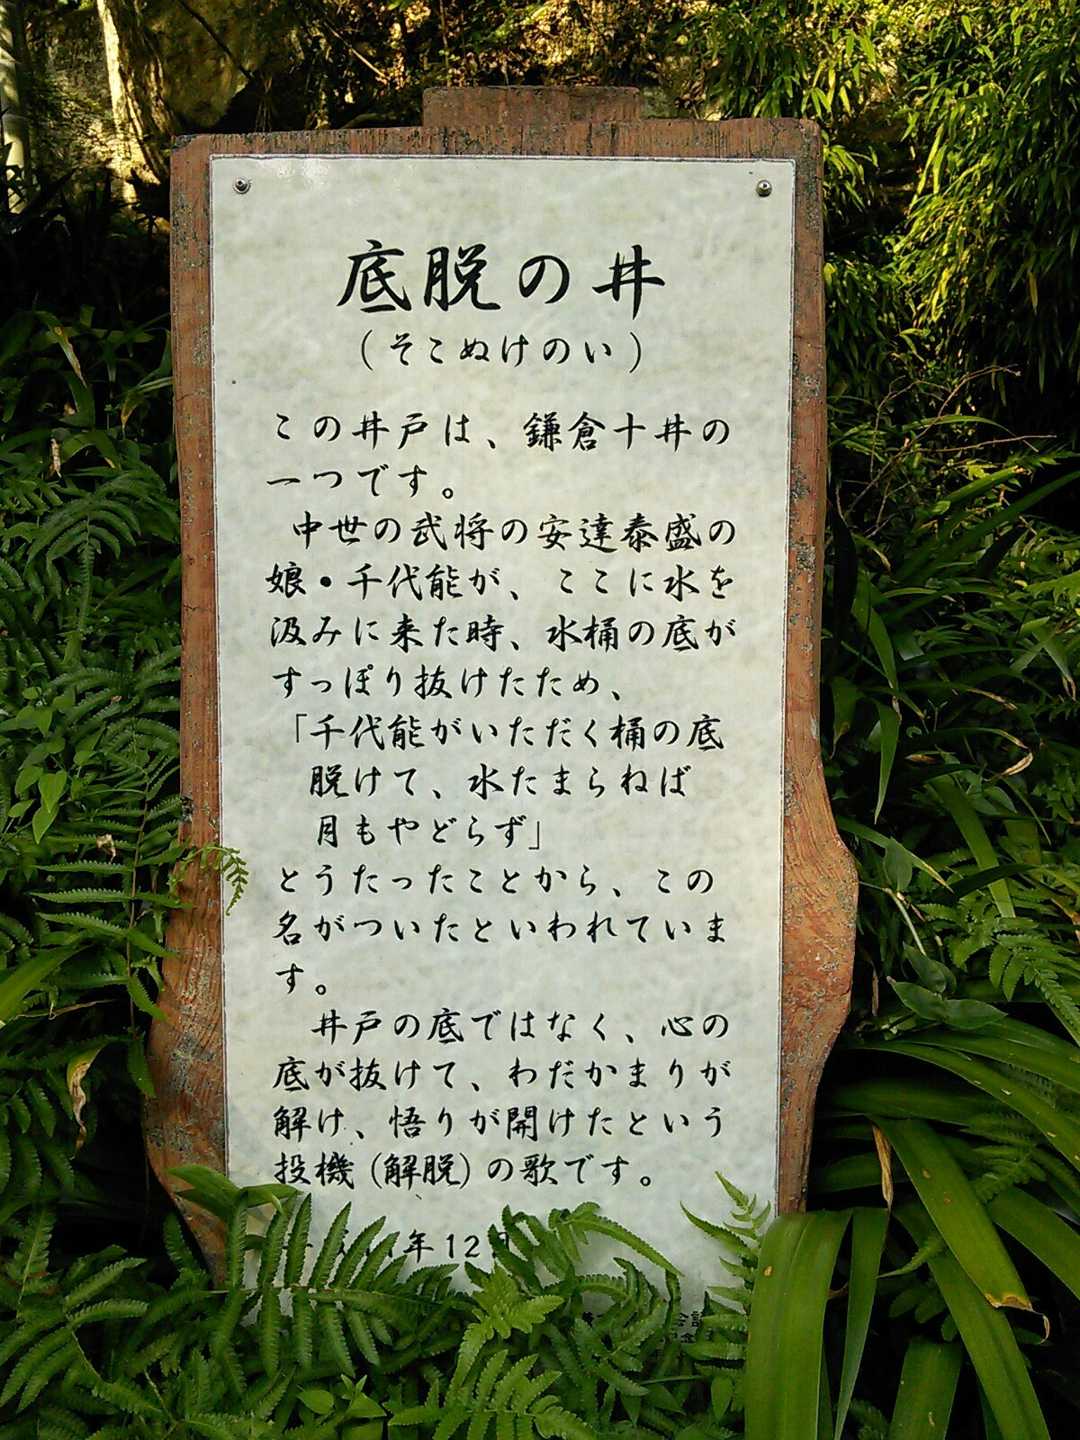 底脱の井
（そこぬけのい）
この井戸は、鎌倉十井の
一つです。
中世の武将の安達泰盛の
娘・千代能が、ここに水を
汲みに来た時、水桶の底が
すっぽり抜けたため、
「千代能がいただく桶の底
脱けて、水たまらねば
月もやどらず」
とうたったことから、この
名がついたといわれていま
す。
井戸の底ではなく、心の
底が抜けて、わだかまりが
解け、悟りが開けたという
投機（解脱）の歌です。
年12月